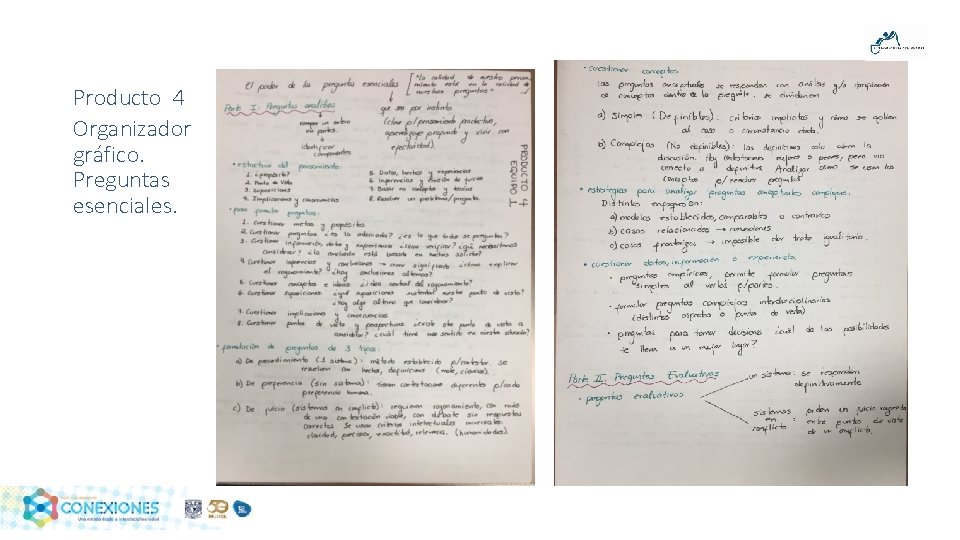 Producto 4
Organizador
gráfico.
Preguntas
esenciales.
El poder de las preguntas esenciales
"la calidad de nuestro pensa-
miento está en la calidad de
nuestras preguntas"
Parte I. Preguntas analíticas
romper un entero
en partes.
identificar
componentes
que sea por instinto
(clave p/pensamiento productivo,
aprendizaje profundo y vivir con
efectividad).
PRODUCTO 4
EQUIPO 1
• estructura del pensamiento.
1. ¿propósito?
2. Punto de Vista
3. Suposiciones
4. Implicaciones y consecuencias
5. Datos, hechos y experiencias
6. inferencias y emisión de juicios
7. Basar en conceptos y teorías
8. Resolver un problema/pregunta.
• para formular preguntas:
1. cuestionar metas y propósitos
2. Cuestionar preguntas ¿es la adecuada? ¿es lo que todos se preguntan?
3. Cuestionar información, datos y experiencia ¿cómo verificar? ¿qué necesitamos
considerar? ¿la conclusión está basada en hechos sólidos?
4. Cuestionar inferencias y conclusiones → significado ¿cómo explicar
el razonamiento? ¿hay conclusiones alternas?
5. Cuestionar conceptos e ideas ¿idea central del razonamiento?
6. Cuestionar suposiciones ¿qué suposiciones sustentan nuestro punto de vista?
¿hay algo alterno que considerar?
7. Cuestionar implicaciones y consecuencias
8. Cuestionar puntos de vista y perspectivas ¿existe otro punto de vista a
considerar? ¿cuál tiene más sentido en nuestra situación?
• formulación de preguntas de 3 tipos:
a) De procedimiento (1 sistema): método establecido p/contestar, se
resuelven con hechos, definiciones (mate, ciencias).
b) De preferencia (sin sistema): tienen contestaciones diferentes p/cada
preferencia humana.
c) De juicio (sistemas en conflicto): requieren razonamiento, con más
de una contestación viable, con debate sin respuestas
correctas. Se usan criterios intelectuales universales:
claridad, precisión, exactitud, relevancia. (humanidades).
• cuestionar conceptos
Las preguntas conceptuales se responden con análisis y/o
de conceptos dentro de la pregunta. se dividen en
a) Simples (Definibles): criterios implícitos y cómo se aplican
al caso o circunstancia dada.
b) Complejas (No definibles): las definiciones solo abren la
discusión. Hay contestaciones mejores o peores, pero no
correcta o definitiva. Analizar cómo se usan los
conceptos p/resolver pregunta
• estrategias para analizar preguntas conceptuales complejas.
Distintos enfoques:
a) modelos establecidos, comparables o contrarios
b) casos relacionados → conexiones
c) casos fronterizos → imposible dar trato igualitario.
• cuestionar datos, información o experiencia
• preguntas empíricas, permite formular preguntas
simples al verlas p/partes.
• formular preguntas complejas interdisciplinarias
(distintos aspectos o puntos de vista)
• preguntas para tomar decisiones ¿cuál de las posibilidades
te lleva a un mejor lugar?
Parte II. Preguntas Evaluativas
• preguntas evaluativas
un sistema: se responden
definitivamente
sistemas
en
conflicto
: piden un juicio razonado
entre puntos de vista
de un conflicto.
CONEXIONES
Una mirada desde la interdisciplinariedad
50